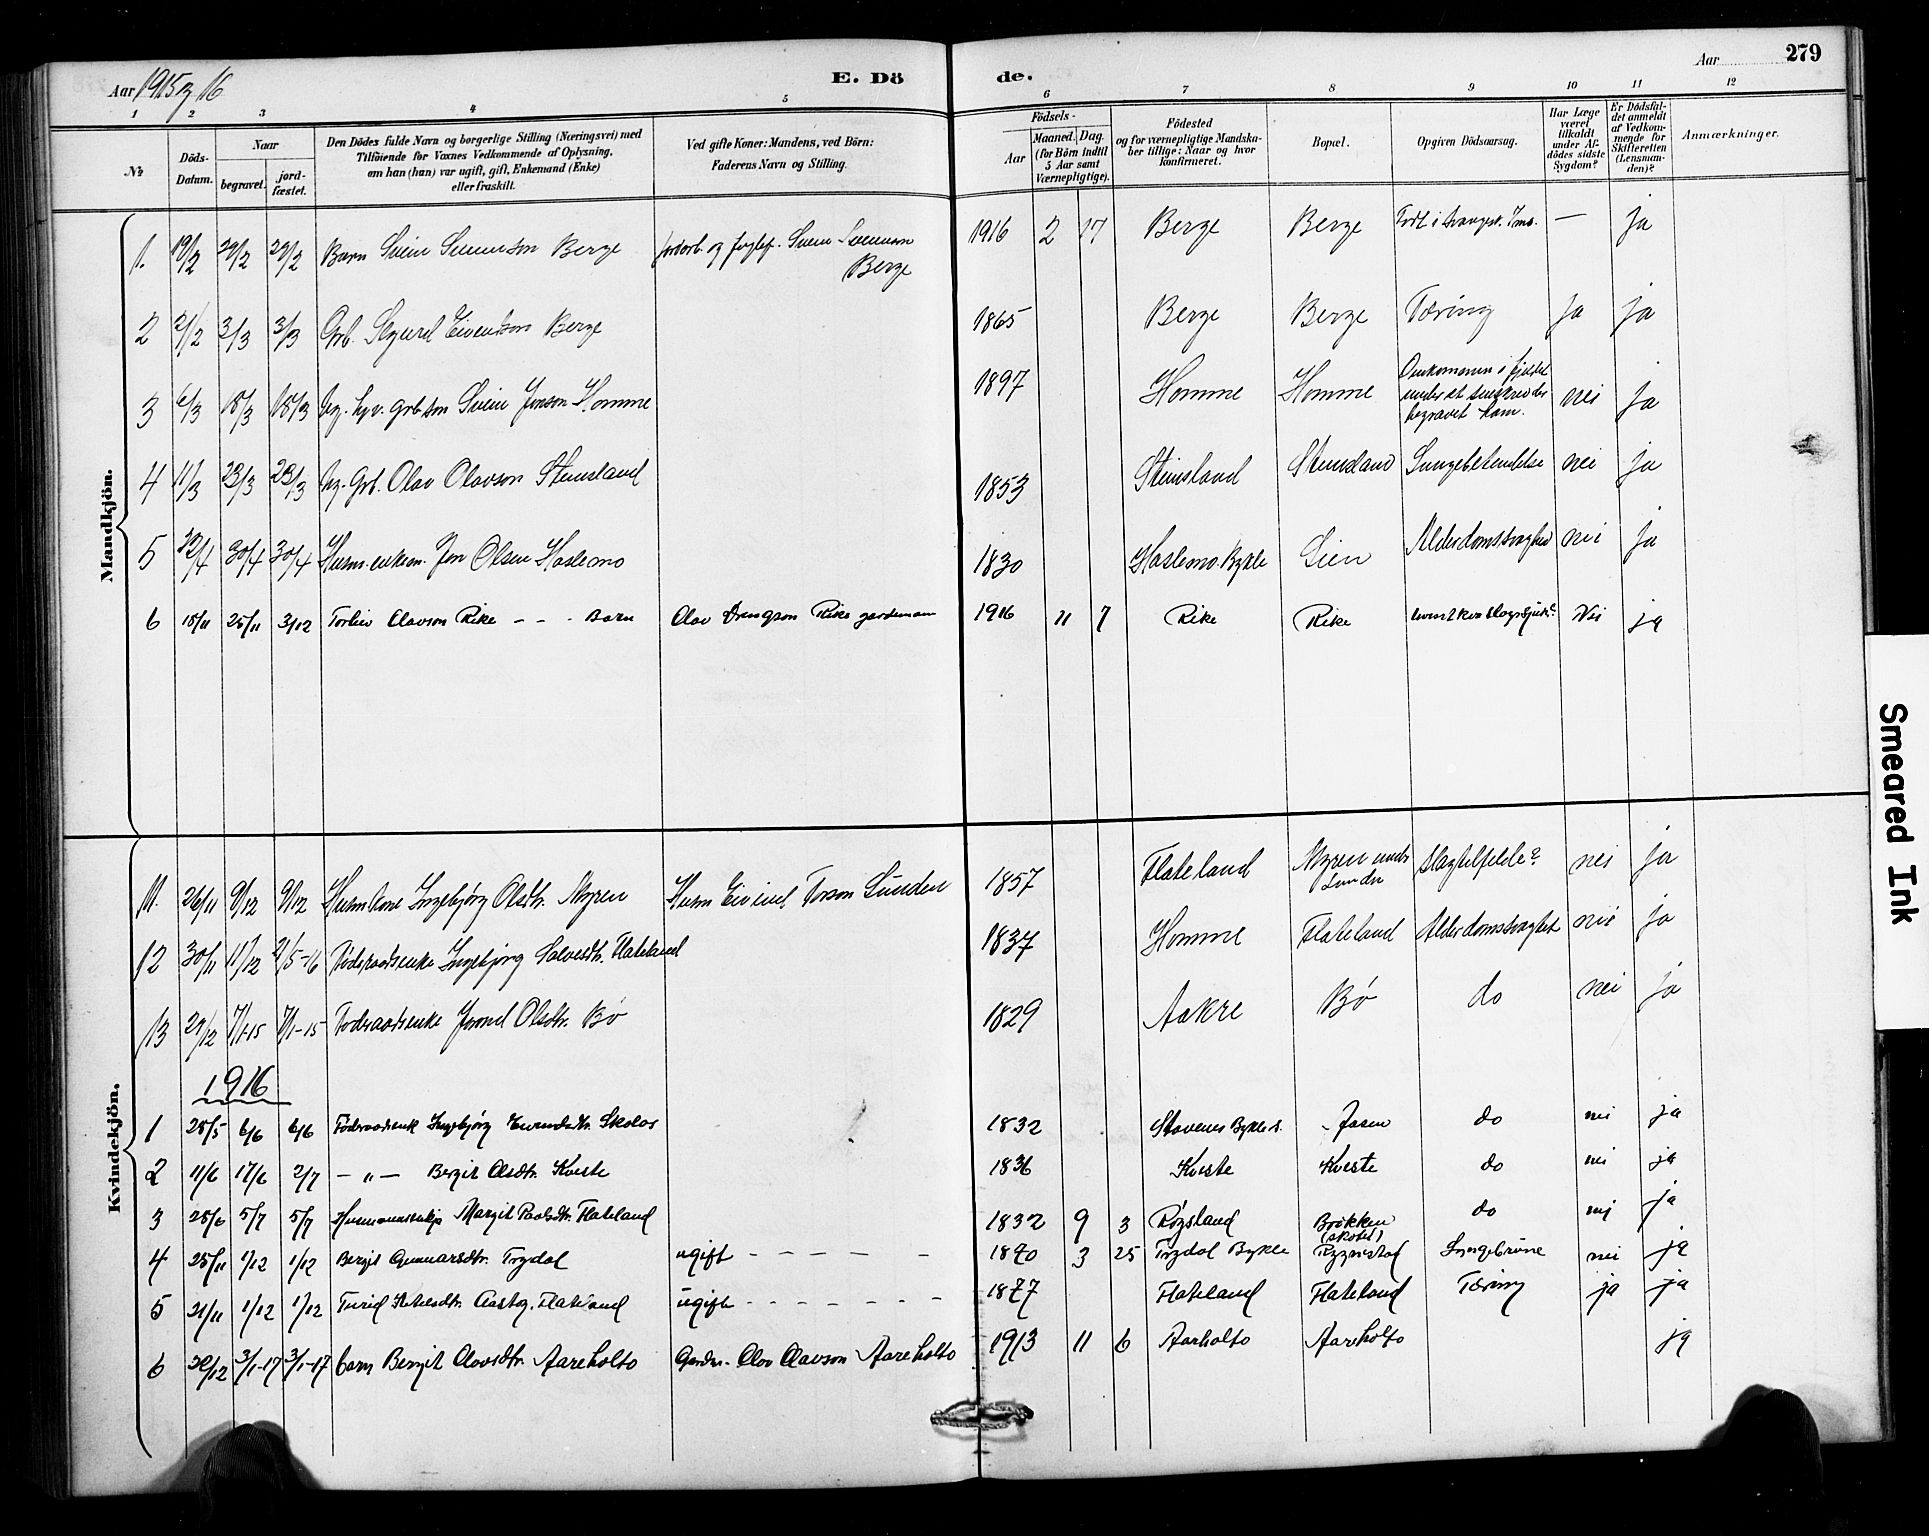 Aar 1915 og 16
E. Dö
de.
Aar
279
1 2 3 4 5 6 7 8 9 10 11 12
No
Döds-
Datum.
Naar
begravet.
jord-
fæstet.
Den Dödes fulde Navn og borgerlige Stilling (Næringsvei) med
Tilföiende for Voxnes Vedkommende af Oplysning,
om han (hun) var ugift, gift, Enkemand (Enke)
eller fraskilt.
Ved gifte Koner: Mandens, ved Börn:
Faderens Navn og Stilling.
Födsels-
Aar
Maaned. Dag.
(for Börn indtil
5 Aar samt
Værnepligtige).
Födested
og for værnepligtige Mandska-
ber tillige: Naar og hvor
konfirmeret.
Bopæl.
Opgiven Dödsaarsag.
Har Læge
været
tilkaldt
under Af-
dödes sidste
Sygdom?
Er Dödsfal-
det anmeldt
af Vedkom-
mende for
Skifteretten
(Lensman-
den)?
Anmærkninger.
Mandkjön.
1. 19/2 29/2 29/2 Barn Svein Sveinson Berge Svein Sveinson Berge 1916 2 17 Berge Berge — ja
2 2/2 3/3 3/3 Grb. Sigurd Eivindson Berge 1865 Berge Berge Tæring ja ja
3 6/3 18/3 18/3 Ug. hjv. grb søn Svein Jonson Homme 1897 Homme Homme Omkommen i fjeldet
under et sneskred der
begravet ham. nei ja
4 11/3 23/3 23/3 Ug. Grb. Olav Olavson Steinsland 1853 Steinsland Steinsland Lungebetendelse nei ja
5 22/4 30/4 30/4 Husm. enkem. Jon Olsen Haslemo 1830 Haslemo. Bykle Lien Alderdomssvaghed nei ja
6 18/11 25/11 3/12 Torleiv Olavson Rike - - - Barn Olav Drengson Rike gardmann 1916 11 7 Rike Rike Nei ja
Kvindekjön.
11. 26/11 9/12 9/12 Husm kone Ingebjørg Olsdtr. Myren Husm Eivind Torson Lunden 1857 Flateland Myren under
Lunden Slagtilfelde? nei ja
12 30/11 11/12 21/5-16 Føderaadsenke Ingebjørg Salvesdtr. Flateland 1837 Homme Flateland Alderdomssvaghet nei ja
13 29/12 7/1-15 7/1-15 Føderaadsenke Jorond Olsdtr. Bø 1829 Aakre Bø do nei ja
1916
1 28/5 6/6 6/6 Føderaadsenk Ingebjørg Eivindsdtr. Skolos 1832 Stavenes Bykle s. Josen do nei ja
2 11/6 17/6 2/7 — „ — Bergit Olsdtr. Kveste 1836 Kveste Kveste do nei ja
3 28/6 5/7 5/7 Husmannsenkje Margit Paalsdtr. Flateland 1832 9 3 Røgsland Brøkken
(skolet) do nej ja
4 25/11 1/12 1/12 Bergit Gunnarsdtr. Trydal ugift - - - - - - 1870 3 25 Trydal Bykle Rygnestad nei ja
5 21/11 1/12 1/12 Turid Ketilsdtr. Aastog. Flateland ugift - - - - - - - 1877 Flateland Flateland Tæring ja ja
6 22/12 3/1-17 3/1-17 barn Bergit Olavsdtr. Aareholto Gardm. Olav Olavson Aareholto 1913 11 6 Aarholto Aareholto ja
Smeared Ink